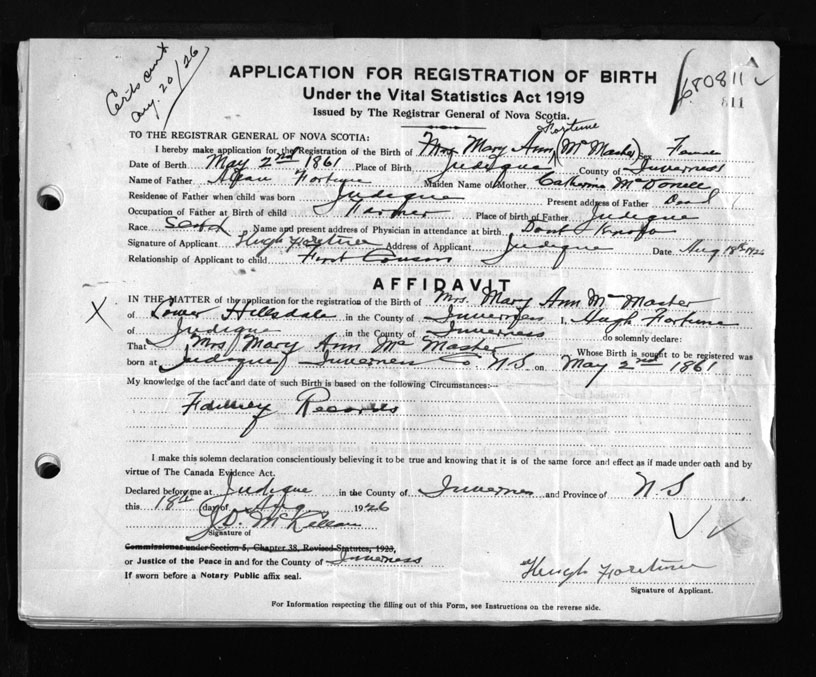 Certs sent
Aug. 20/26
680811
811
APPLICATION FOR REGISTRATION OF BIRTH
Under the Vital Statistics Act 1919
Issued by The Registrar General of Nova Scotia.
TO THE REGISTRAR GENERAL OF NOVA SCOTIA:
Fortune
I hereby make application for the Registration of the Birth of Mrs Mary Ann (McMaster) Sex Female
Date of Birth May 2nd 1861 Place of Birth Judique County of Inverness
Name of Father Fortune Maiden Name of Mother Catherine McDonell
Residence of Father when child was born Judique Present address of Father Dead
Occupation of Father at Birth of child Farmer Place of birth of Father Judique
Race Scotch Name and present address of Physician in attendance at birth Dont Know
Signature of Applicant Hugh Fortune Address of Applicant Judique Date Aug 18th 1926
Relationship of Applicant to child First Cousin
AFFIDAVIT
X
IN THE MATTER of the application for the registration of the Birth of Mrs. Mary Ann McMaster
of Lower Hillsdale in the County of Inverness I, Hugh Fortune
of Judique in the County of Inverness do solemnly declare:
That Mrs Mary Ann McMaster Whose Birth is sought to be registered was
born at Judique Inverness Co. N.S. on May 2nd 1861
My knowledge of the fact and date of such Birth is based on the following Circumstances:—
Family Records
I make this solemn declaration conscientiously believing it to be true and knowing that it is of the same force and effect as if made under oath and by
virtue of The Canada Evidence Act.
Declared before me at Judique in the County of Inverness and Province of N S
this 18th (day of Aug 1926
J.D. McLellan
Signature of
Commissioner under Section 5, Chapter 38, Revised Statutes, 1923,
or Justice of the Peace in and for the County of Inverness
If sworn before a Notary Public affix seal.
Hugh Fortune
Signature of Applicant.
For Information respecting the filling out of this Form, see Instructions on the reverse side.